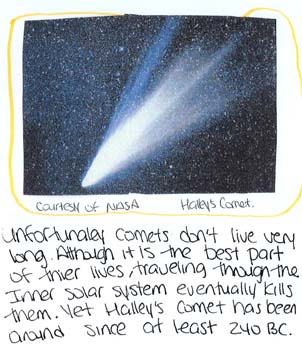 Courtesy of NASA Halley's Comet.
Unfortunaley Comets don't live very
long. Although it is the best part
of thier lives, traveling through the
Inner solar system eventually kills
them. Yet Halley's Comet has been
around since at least 240 BC.